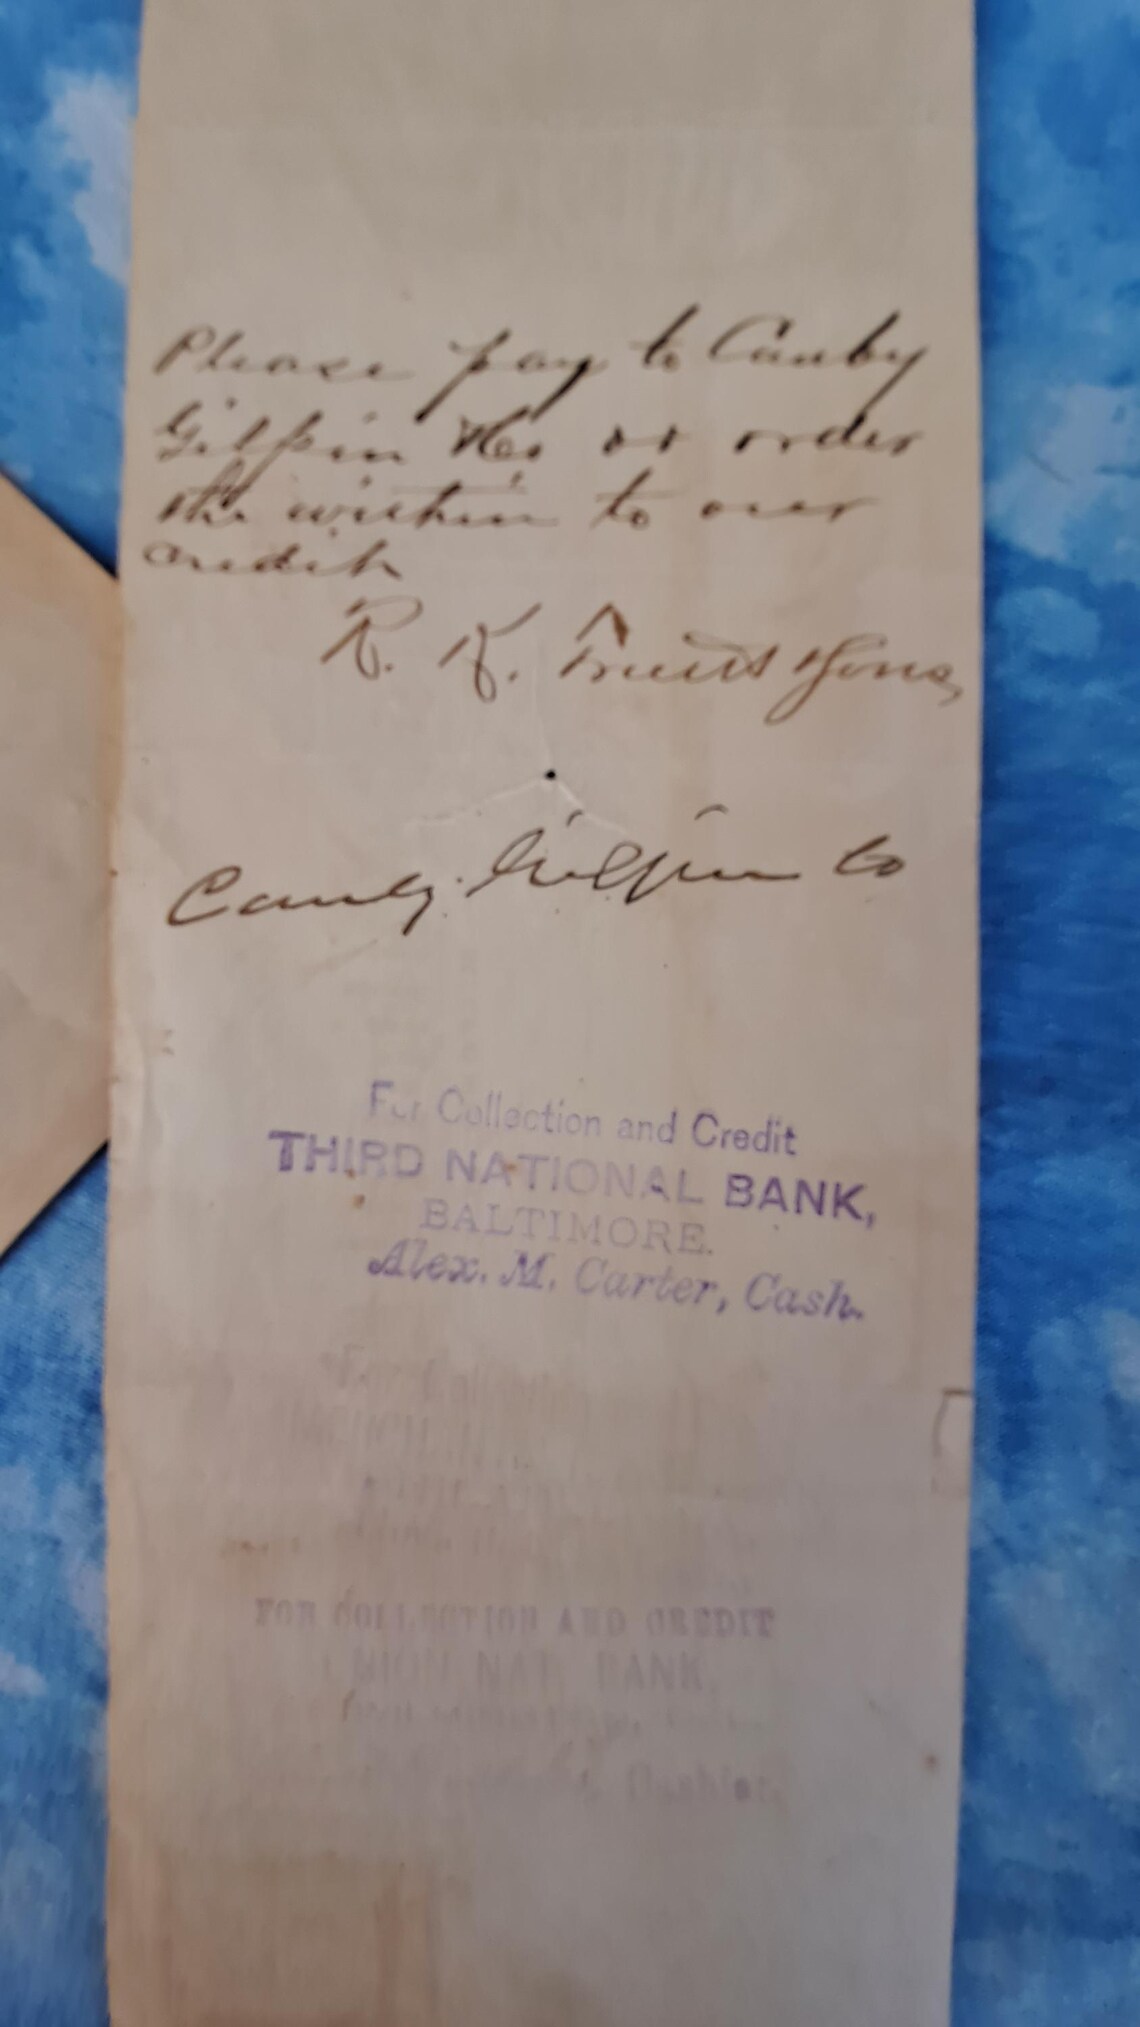 Please pay to Canby
Gilpin & Co or order
the within to our
credit
R. K. & Sons
Canby Gilpin Co
For Collection and Credit
THIRD NATIONAL BANK,
BALTIMORE.
Alex. M. Carter, Cash.
For
FOR COLLECTION AND CREDIT
NAT BANK,
Cashier.